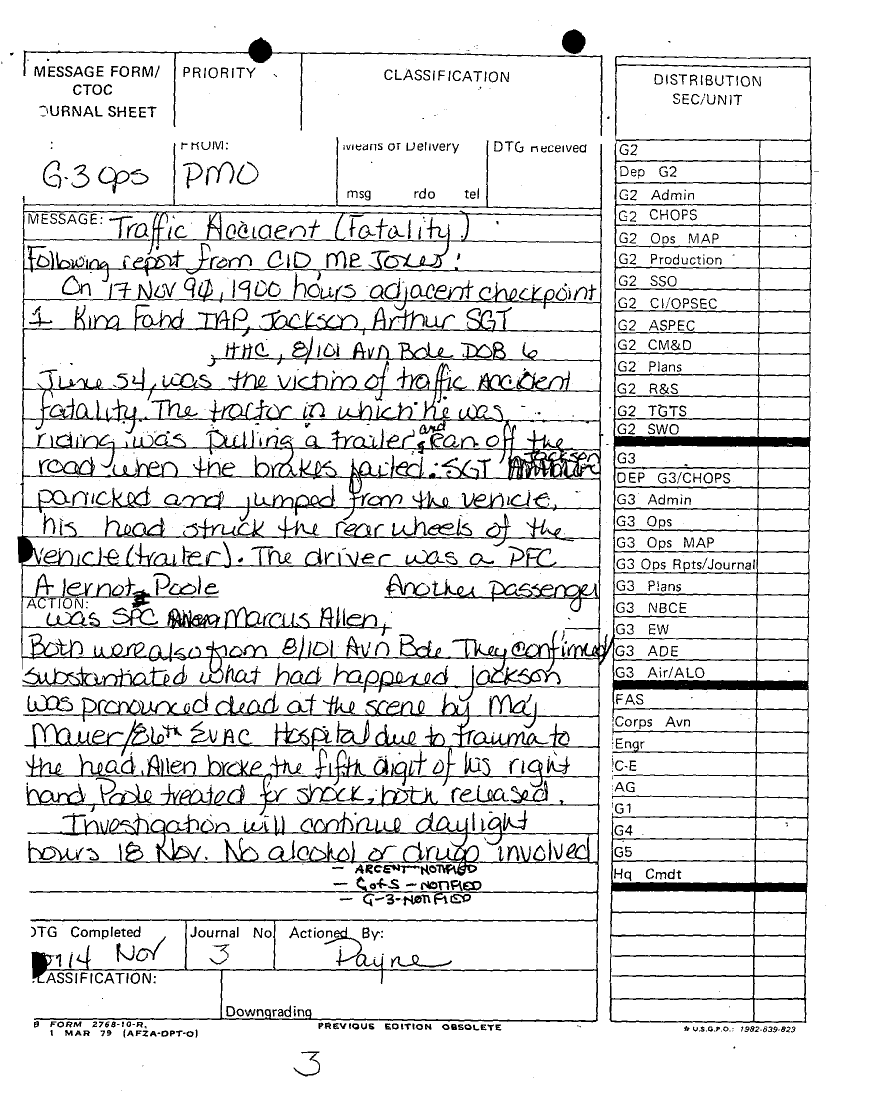 MESSAGE FORM/
CTOC
OURNAL SHEET
PRIORITY
CLASSIFICATION
DISTRIBUTION
SEC/UNIT
:
G-3 Ops
FROM:
PMO
Means of Delivery
msg rdo tel
DTG Received
MESSAGE: Traffic Accident (Fatality)
Following report from CID, MR Jones:
On 17 Nov 90, 1900 hours adjacent checkpoint
1 King Fahd IAP, Jackson, Arthur SGT
, HHC, 8/101 Avn Bde DOB 6
June 54, was the victim of traffic accident
fatality. The tractor in which he was
riding was pulling a trailer, and ran off the
road when the brakes failed. SGT Jackson
panicked and jumped from the vehicle,
his head struck the rear wheels of the
vehicle (trailer). The driver was a PFC
Poole Another passenger
ACTION:
was SPC Marcus Allen,
Both were also from 8/101 Avn Bde. They confirmed/
substantiated what had happened Jackson
was pronounced dead at the scene by Maj
Mauer/86th EVAC Hospital due to trauma to
the head, Allen broke the fifth digit of his right
hand, Poole treated for shock, both released.
Investigation will continue daylight
hours 18 Nov. No alcohol or drugs involved
— ARCENT NOTIFIED
— C of S — NOTIFIED
— G-3-NOTIFIED
DTG Completed
Nov
Journal No
3
Actioned By:
Payne
CLASSIFICATION:
Downgrading
B FORM 2768-10-R,
1 MAR 79 (AFZA-DPT-O)
PREVIOUS EDITION OBSOLETE
☆ U.S.G.P.O.: 1982-639-823
G2
Dep G2
G2 Admin
G2 CHOPS
G2 Ops MAP
G2 Production
G2 SSO
G2 CI/OPSEC
G2 ASPEC
G2 CM&D
G2 Plans
G2 R&S
G2 TGTS
G2 SWO
G3
DEP G3/CHOPS
G3 Admin
G3 Ops
G3 Ops MAP
G3 Ops Rpts/Journal
G3 Plans
G3 NBCE
G3 EW
G3 ADE
G3 Air/ALO
FAS
Corps Avn
Engr
C-E
AG
G1
G4
G5
Hq Cmdt
3